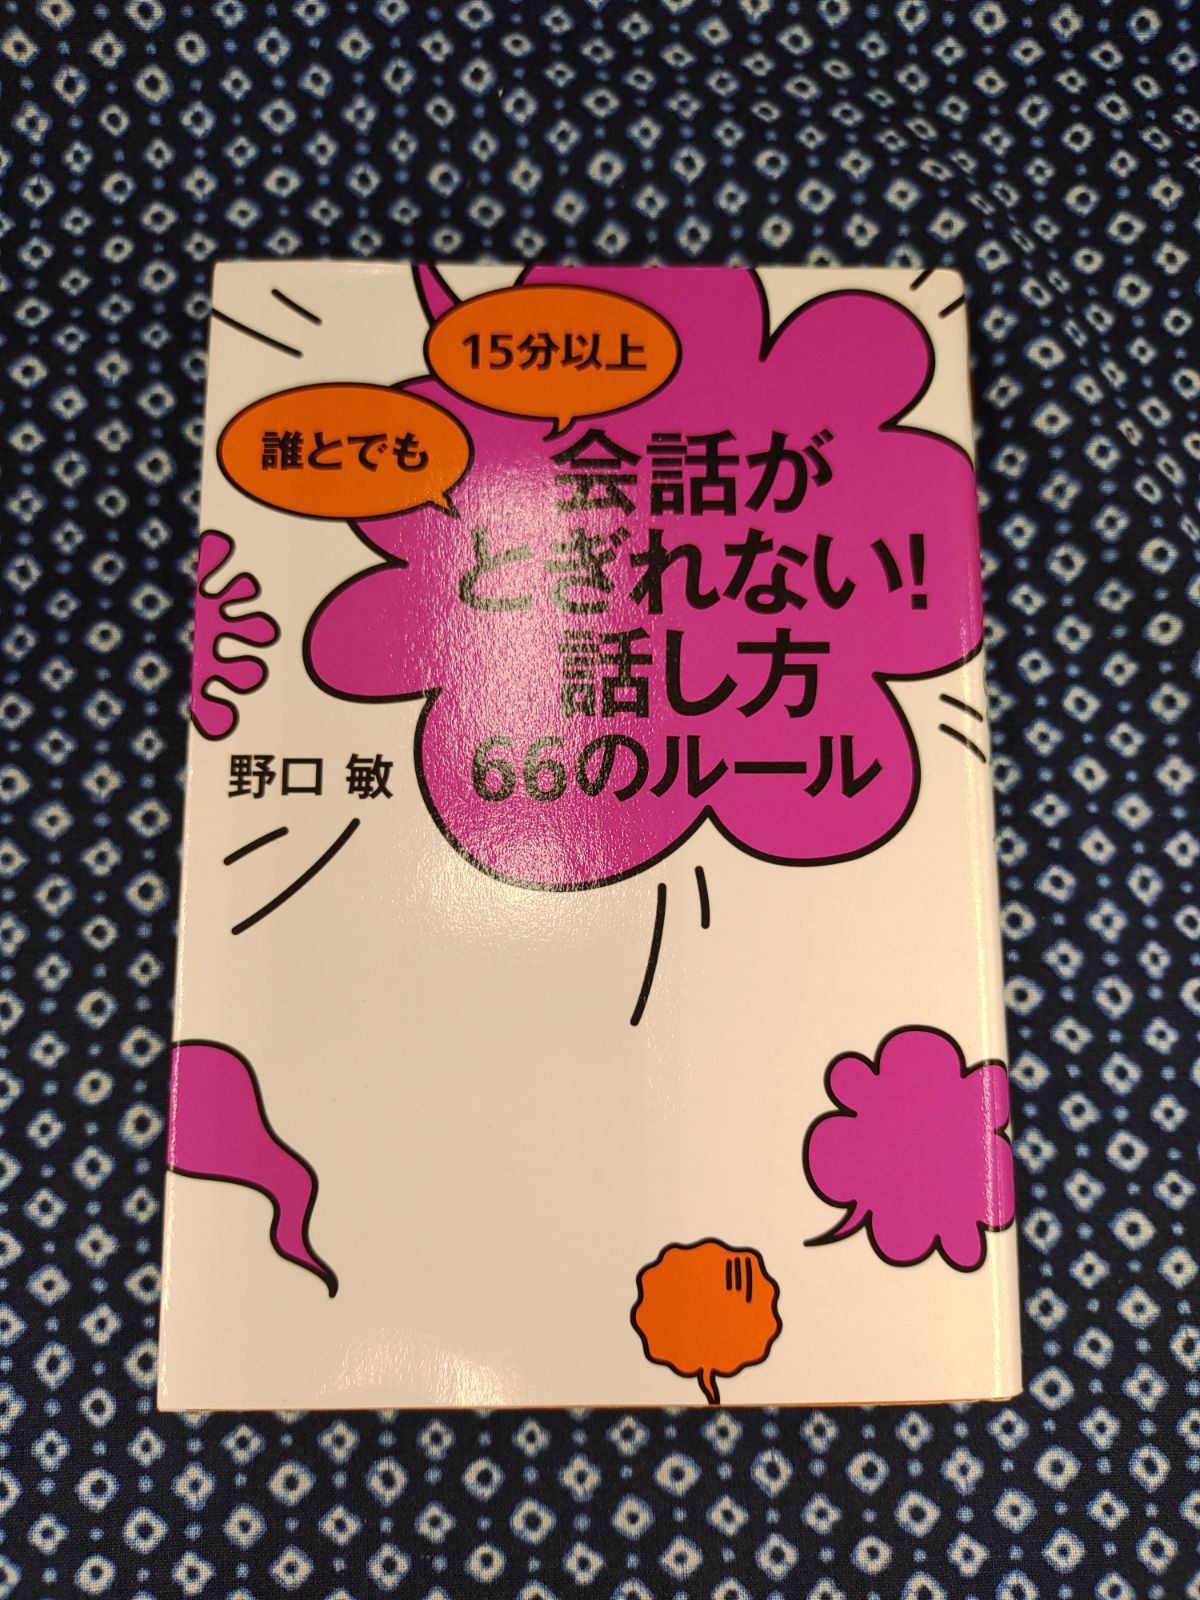 誰とでも
15分以上
会話が
とぎれない!
話し方
66のルール
野口 敏